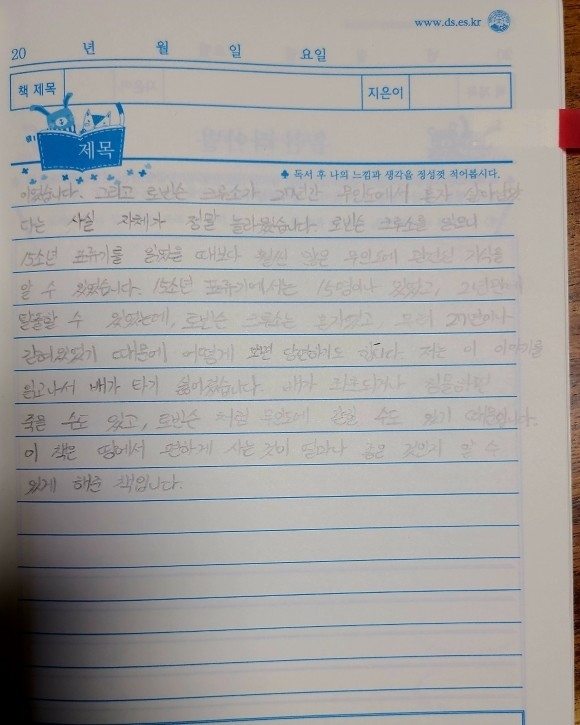 www.ds.es.kr
20 년 월 일 요일
책 제목 지은이
제목
♣ 독서 후 나의 느낌과 생각을 정성껏 적어봅시다.
이었습니다. 그리고 로빈슨 크루소가 27년간 무인도에서 혼자 살아남았
다는 사실 자체가 정말 놀라웠습니다. 로빈슨 크루소를 읽으니
15소년 표류기를 읽었을 때보다 훨씬 많은 무인도에 관련된 지식을
알 수 있었습니다. 15소년 표류기에서는 15명이나 있었고, 2년만에
탈출할 수 있었는데, 로빈슨 크루소는 혼자였고, 무려 27년이나
갇혀있었기 때문에 어떻게 보면 답답하기도 합니다. 저는 이 이야기를
읽고나서 배가 타기 싫어졌습니다. 배가 좌초되거나 침몰하면
죽을 수도 있고, 로빈슨 처럼 무인도에 갇힐 수도 있기 때문입니다.
이 책은 땅에서 편하게 사는 것이 얼마나 좋은 것인지 알 수
있게 해준 책입니다.